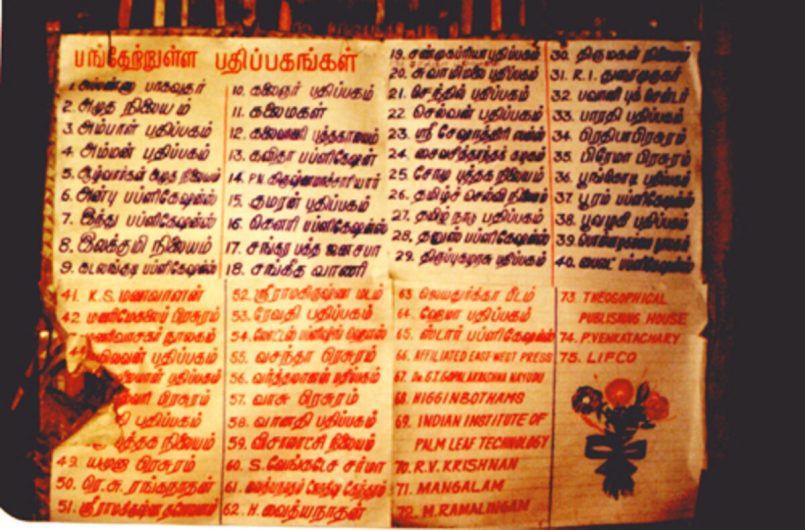 பங்கேற்றுள்ள பதிப்பகங்கள்
2. அமுத நிலையம்
3. அம்பாள் பதிப்பகம்
4. அம்மன் பதிப்பகம்
5. ஆழ்வார்கள் அமுத நிலையம்
6. அன்பு பப்ளிகேஷன்ஸ்
7. இந்து பப்ளிகேஷன்ஸ்
8. இலக்குமி நிலையம்
9. கடலங்குடி பப்ளிகேஷன்ஸ்
10. கலைஞர் பதிப்பகம்
11. கலைமகள்
12. கலைவாணி புத்தகாலயம்
13. கவிதா பப்ளிகேஷன்
14. P.N. கிருஷ்ணமாச்சாரியார்
15. குமரன் பதிப்பகம்
16. கௌரி பப்ளிகேஷன்ஸ்
17. சங்கர பக்த ஜனசபா
18. சங்கீத வாணி
19. சண்முகப்ரியா பதிப்பகம்
20. சுவாமிமலை பதிப்பகம்
21. செந்தில் பதிப்பகம்
22. செல்வன் பதிப்பகம்
23. ஸ்ரீ சேஷாத்திரி
24. சைவசித்தாந்தக் கழகம்
25. சோமு புத்தக நிலையம்
26. தமிழ்ச் செல்வி நிலையம்
27. தமிழ் நாடு பதிப்பகம்
28. தனுஸ் பப்ளிகேஷன்ஸ்
29. திருப்புகழரசு பதிப்பகம்
30. திருமகள் நிலையம்
31. R.I. துரைமுருகர்
32. பவானி புக் சென்டர்
33. பாரதி பதிப்பகம்
34. பிரதிபா பிரசுரம்
35. பிரேமா பிரசுரம்
36. பூங்கொடி பதிப்பகம்
37. பூரம் பப்ளிகேஷன்ஸ்
38. பூவழகி பதிப்பகம்
39.
40. பைலட் பப்ளிகேஷன்ஸ்
41. K.S. மணவாளன்
42. மணிமேகலைப் பிரசுரம்
நூலகம்
பதிப்பகம்
பதிப்பகம்
பிரசுரம்
பதிப்பகம்
நிலையம்
49. யமுனா பிரசுரம்
50. ரெ.சு. ரங்கநாதன்
51. ஸ்ரீராமகிருஷ்ண தபோவனம்
52. ஸ்ரீராமகிருஷ்ண மடம்
53. ரேவதி பதிப்பகம்
54. லோட்டஸ் பப்ளிஷிங் ஹௌஸ்
55. வசந்தா பிரசுரம்
56. வர்த்தமானன் பதிப்பகம்
57. வாசு பிரசுரம்
58. வானதி பதிப்பகம்
59. விசாலாட்சி நிலையம்
60. S. வேங்கடேச சர்மா
61.
62. H. வைத்யநாதன்
63. ஜெயதுர்க்கா பீடம்
64. ஹேமா பதிப்பகம்
65. ஸ்டார் பப்ளிகேஷன்ஸ்
66. AFFILIATED EAST-WEST PRESS
67. Dr. G.T. GOPALAKRISHNA NAYUDU
68. HIGGINBOTHAMS
69. INDIAN INSTITUTE OF
PALM LEAF TECHNOLOGY
70. R.V. KRISHNAN
71. MANGALAM
72. M. RAMALINGAM
73. THEOSOPHICAL
PUBLISHING HOUSE
74. P. VENKATACHARY
75. LIFCO